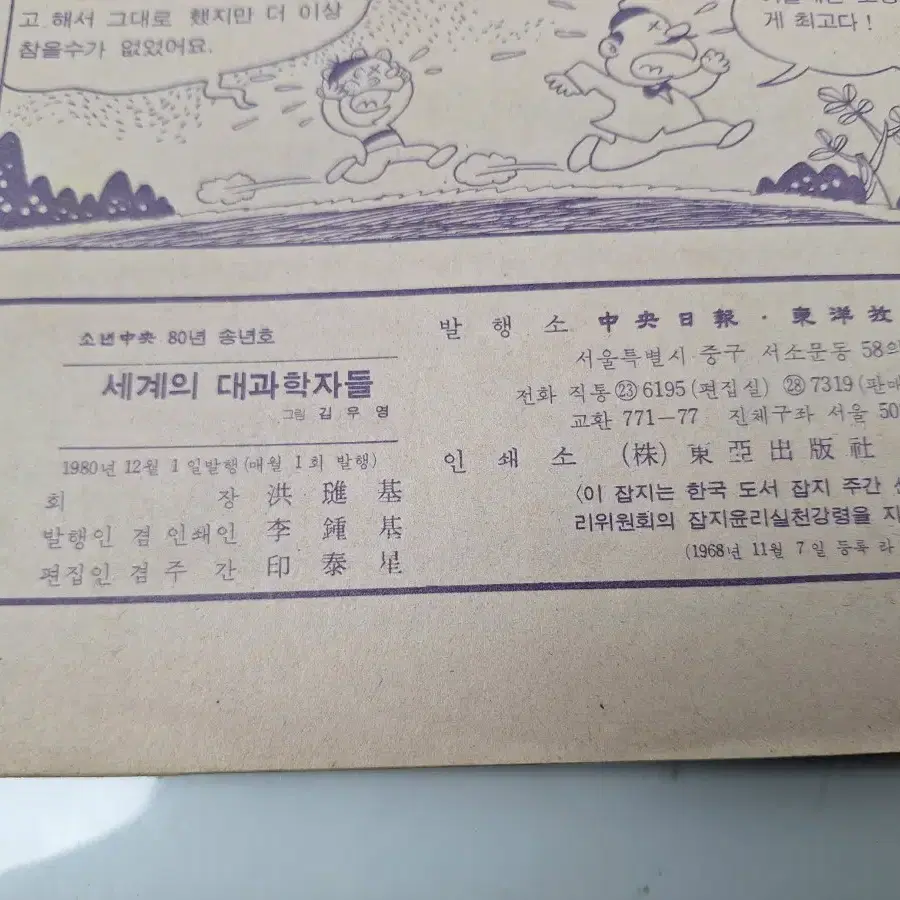 고 해서 그대로 했지만 더 이상
참을수가 없었어요.
게 최고다!
소년中央 80년 송년호
세계의 대과학자들
그림 김우영
1980년 12월 1일발행(매월 1회 발행)
회 장 洪璡基
발행인 겸 인쇄인 李鍾基
편집인 겸 주간 印泰星
발 행 소 中央日報·東洋放
서울특별시 중구 서소문동 58의
전화 직통㉓6195(편집실) ㉘7319(판매
교환 771—77 진체구좌 서울 50
인 쇄 소 (株) 東亞出版社
〈이 잡지는 한국 도서 잡지 주간 신
리위원회의 잡지윤리실천강령을 지
(1968년 11월 7일 등록 라